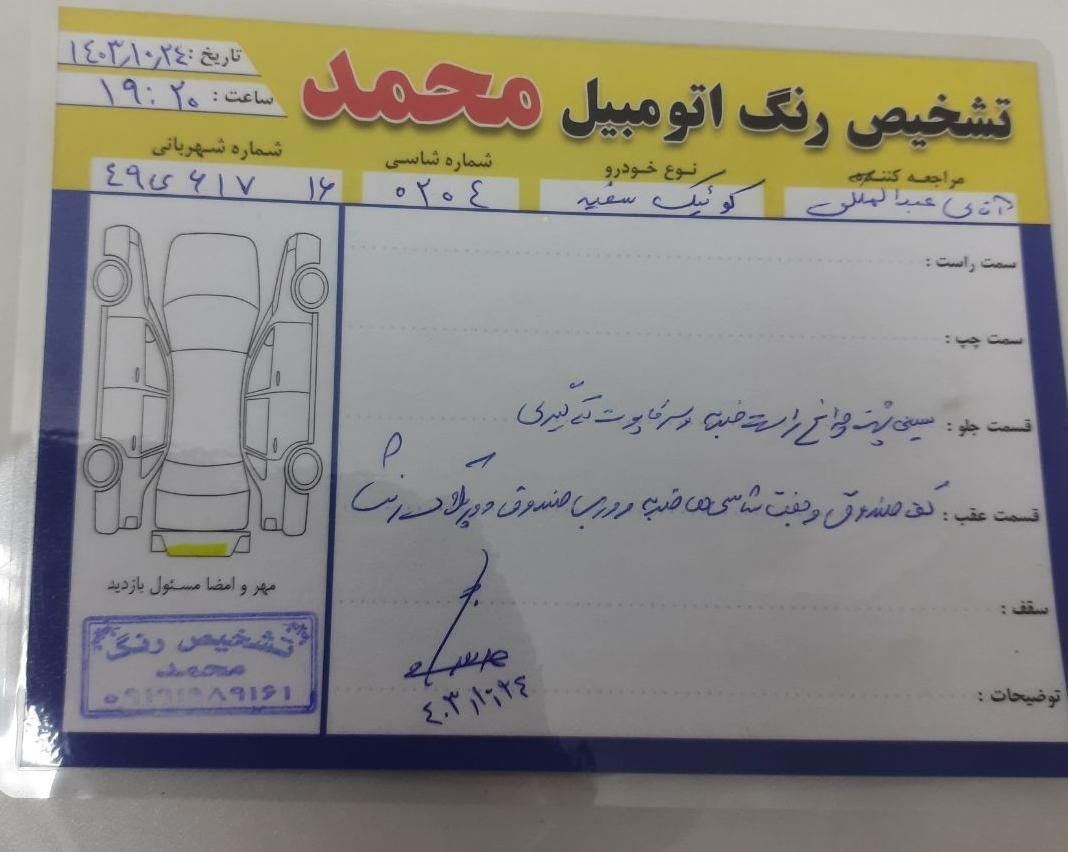 تشخیص رنگ اتومبیل محمد
تاریخ : ۱۴۰۳٫۱۰٫۲۴
ساعت : ۱۹:۲۰
مراجعه کننده
آقای عبدالمللی
نوع خودرو
کوئیک سفید
شماره شاسی
۰۲۰۴
شماره شهربانی
۴۹ی۶۱۷ ۱۶
سمت راست :
سمت چپ :
قسمت جلو : سینی پشت چراغ راست ضربه و سرکاپوت
قسمت عقب : کف صندوق و جفت شاسی ها ضربه و درب صندوق و رنگ
سقف :
توضیحات :
محمد
۴۰۳٫۱۰٫۲۴
مهر و امضا مسئول بازدید
تشخیص رنگ
محمد